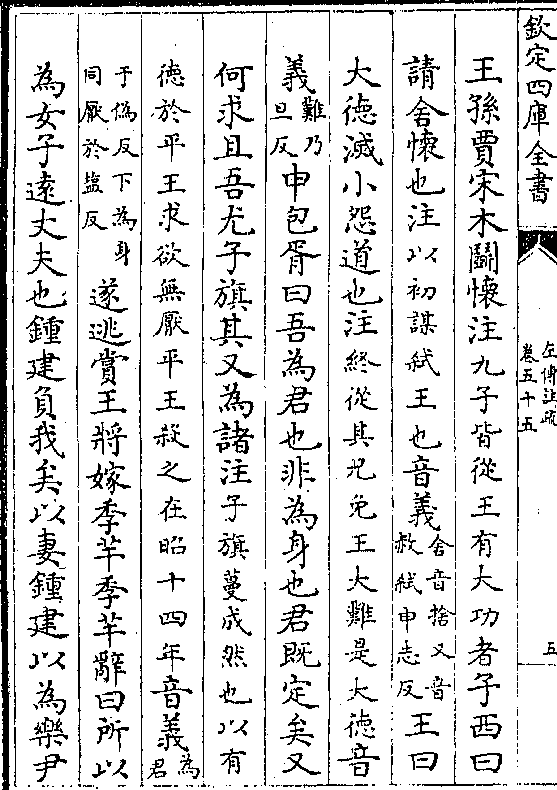 欽定四庫全書
左傳註疏
卷五十五
五
王孫賈宋木鬭懷注九子皆從王有大功者子西曰
請舍懷也注以初謀弑王也音義舍音捨又音
赦弑申志反王曰
大德滅小怨道也注終從其兄免王大難是大德音
義難乃
旦反申包胥曰吾為君也非為身也君既定矣又
何求且吾尤子旗其又為諸注子旗蔓成然也以有
德於平王求欲無厭平王殺之在昭十四年音義為
君
于偽反下為身
同厭於盐反遂逃賞王將嫁季芈季芈辭曰所以
為女子遠丈夫也鍾建負我矣以妻鍾建以為樂尹